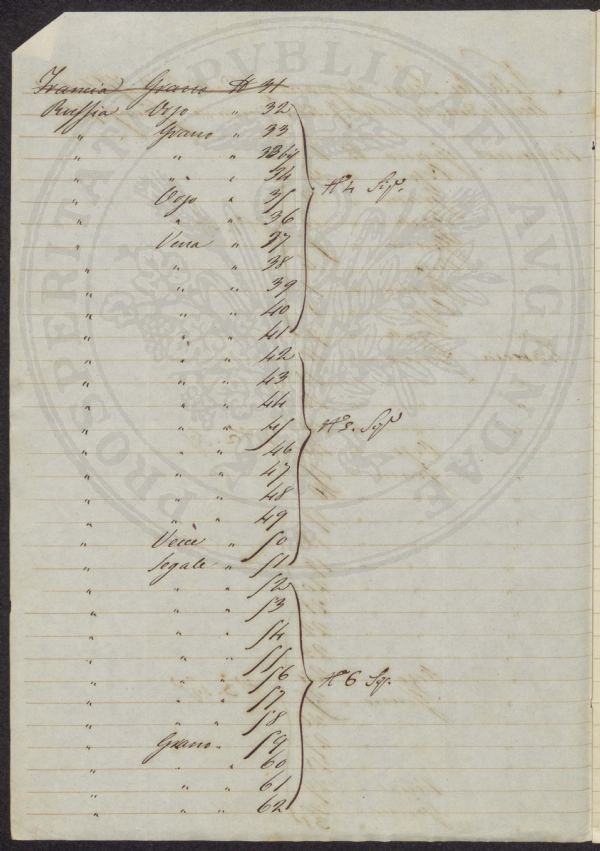 Francia Grano N 31
Russia Orzo " 32
" Grano " 33
" " " 33 bis
" " " 34
" Orzo " 35
" " " 36
" Vena " 37
" " " 38
" " " 39
" " " 40
" " " 41
N 4 Sig.
" " " 42
" " " 43
" " " 44
" " " 45
" " " 46
" " " 47
" " " 48
" " " 49
" Vecie " 50
" Segale " 51
N 5. Sig
" " " 52
" " " 53
" " " 54
" " " 55
" " " 56
" " " 57
" " " 58
" Grano " 59
" " " 60
" " " 61
" " " 62
N 6 Sig.
PROSPERITATI PVBLICAE AVGENDAE